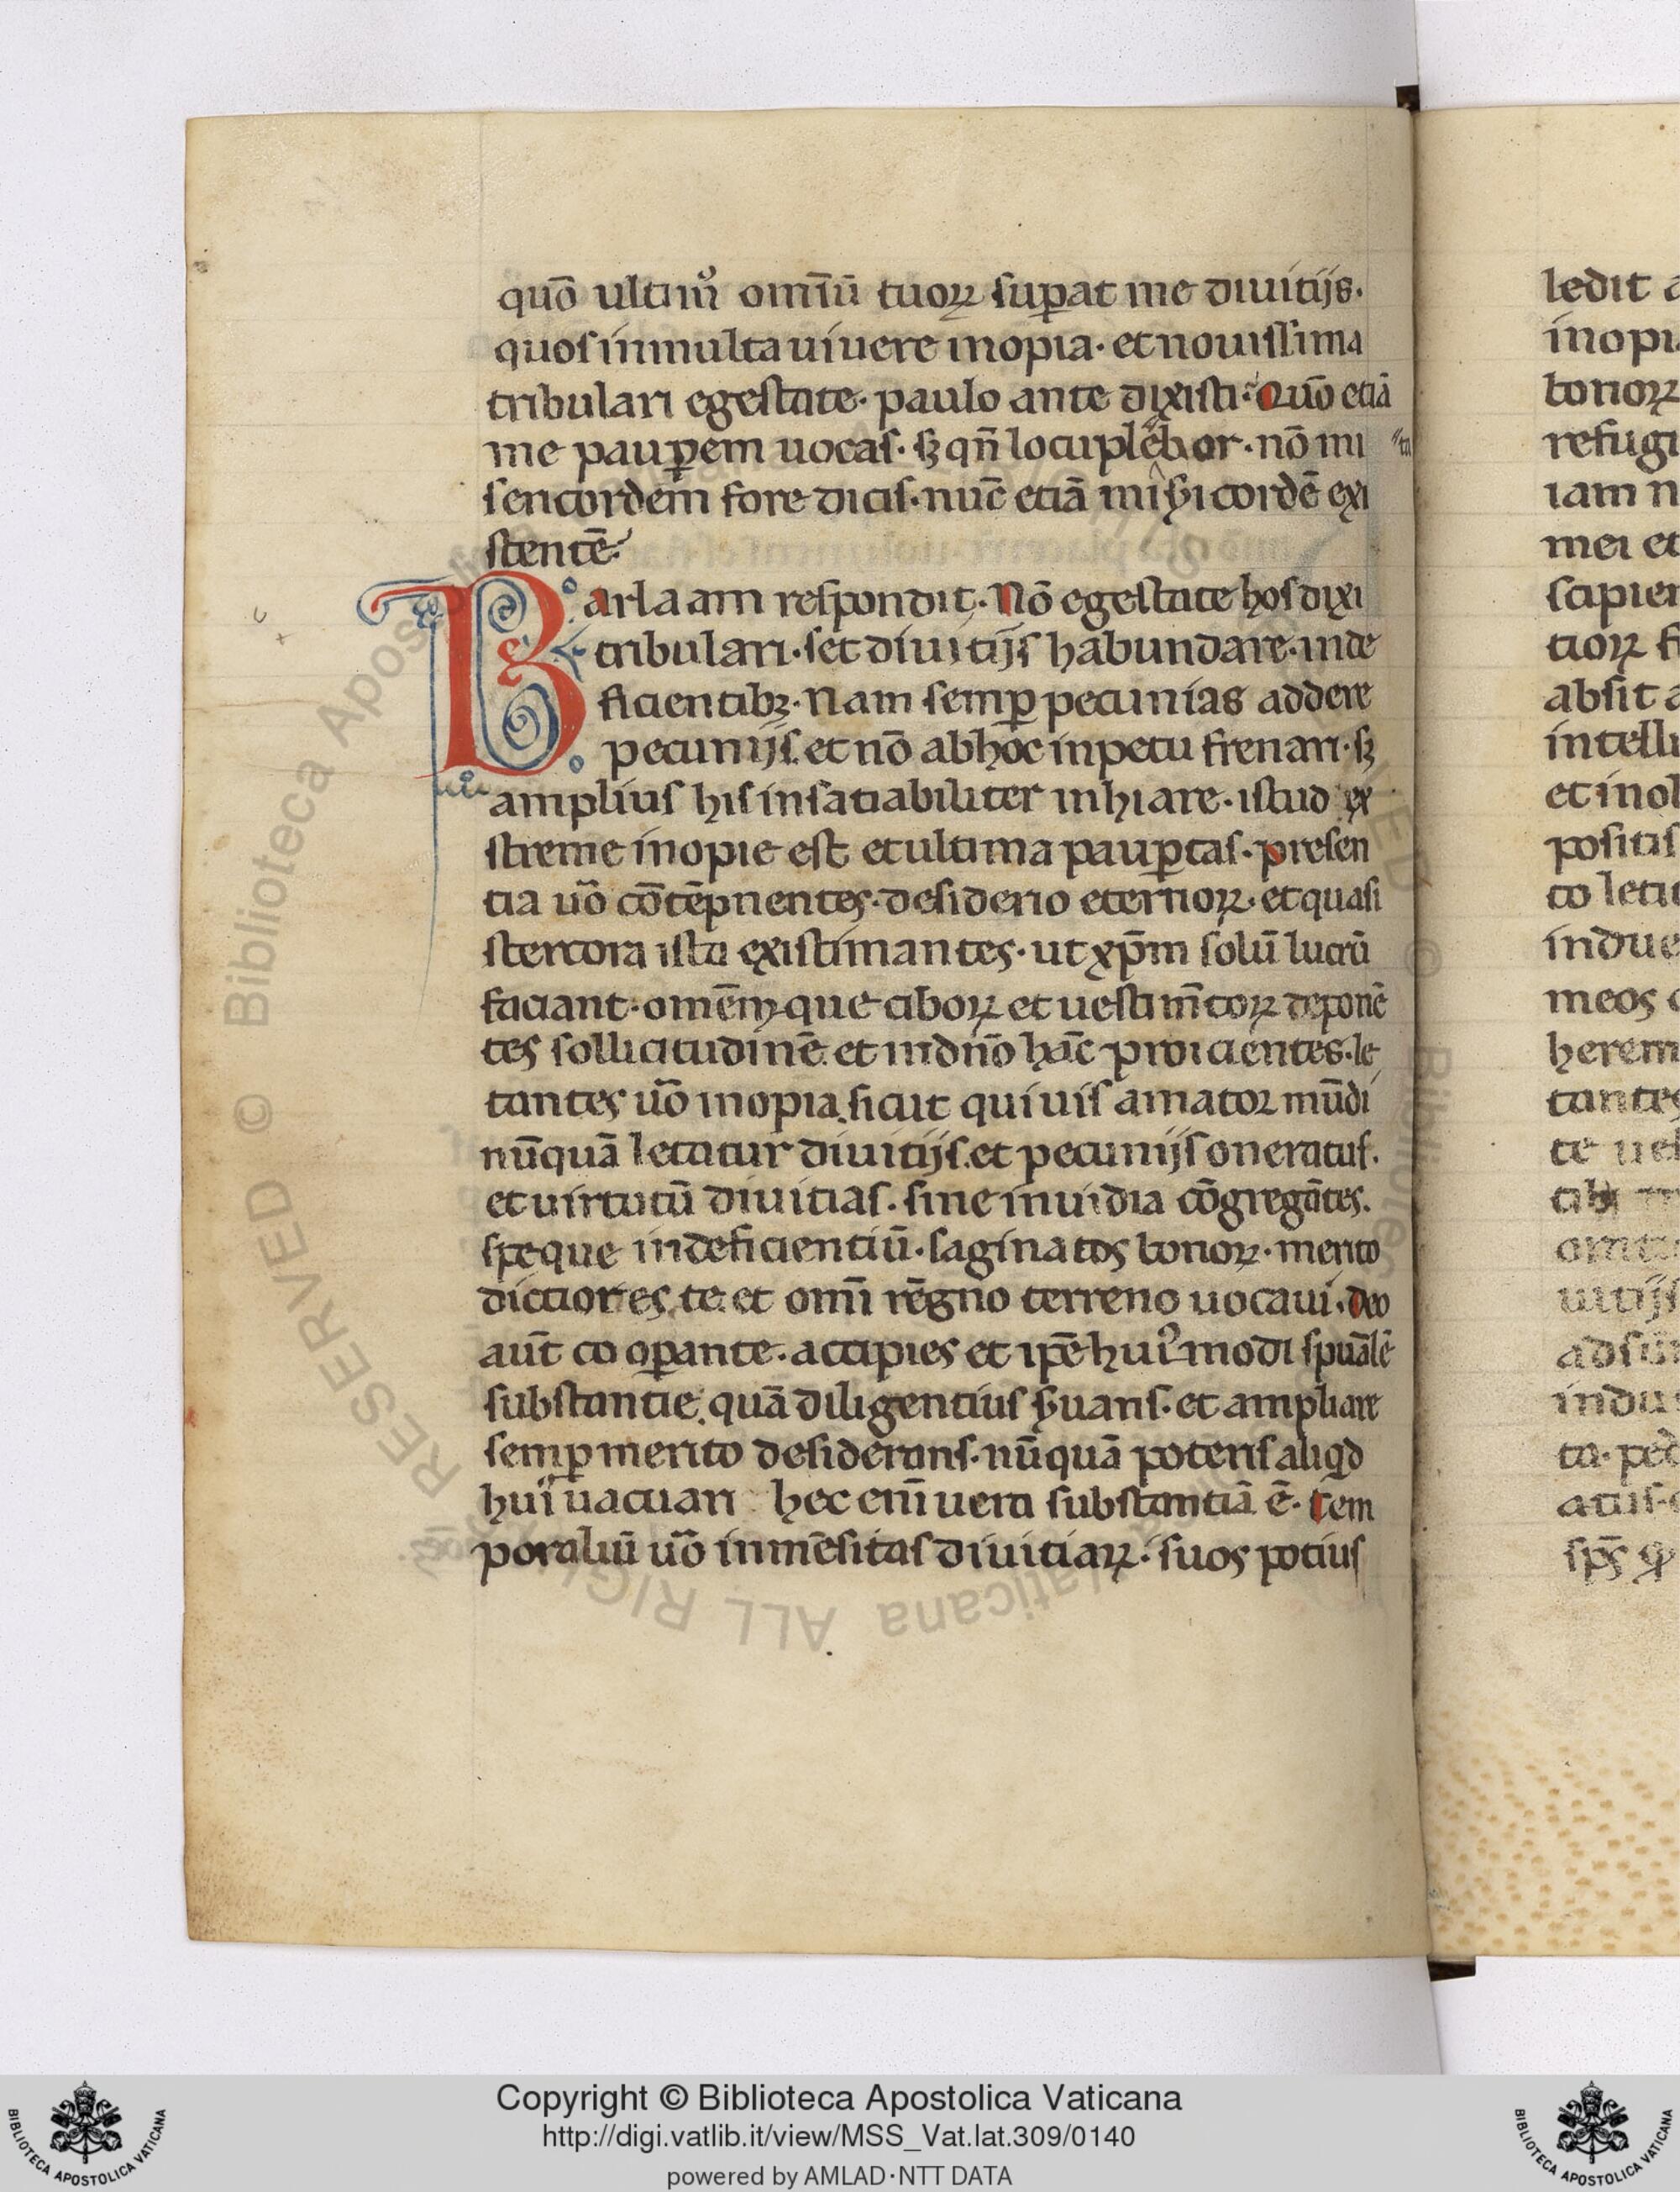 quō ultimꝰ om̄iū tuoꝝ suꝑat me diuitijs·
quos in multa uiuere inopia· et nouissima
tribulari egestate· paulo ante dixisti· Quō etiā
me pauꝑem uocas· sꝫ qn̄ locupletabor· nō mi
sericordem fore dicis· nūc etiā misⁱicordē exi
stentē·
Barlaam respondit· Nō egestate hos dixi
tribulari· set diuitijs habundare· inde
ficientibꝫ· Nam semꝑ pecunias addere
pecunijs· et nō ab hoc inpetu frenari· sꝫ
amplius his insatiabiliter inhiare· istud ex
streme inopie est et ultima pauꝑtas· presen
tia uō cōtēpnentes· desiderio eternoꝝ· et quasi
stercora ista existimantes· ut xp̄m solū lucrū
faciant· omēmque ciboꝝ et uestim̄toꝝ deponē
tes sollicitudinē· et in dn̄o hāc proicientes· le
tantes uō inopia sicut quiuis amator mūdi
nūquā letatur diuitijs· et pecunijs oneratus·
et uirtutū diuitias· sine inuidia cōgregātes·
speque indeficientiū· saginatos bonoꝝ· merito
dictiores te et omī rēgno terreno uocaui· deo
aūt cooꝑante· accipies et ip̄e huiꝰmodi spūalē
substantie· quā diligentius s̄uans· et ampliare
semꝑ merito desiderans· nūquā potens aliqd
huiꝰ uacuari hec enī uera substantiā ē· Tem
poraliū uō inmēsitas diuitiaꝝ· suos potius
ledit a
inopi
bonoꝝ
refugi
iam n
mei et
sapien
tioꝝ
absit a
intelli
et inol
positis
to leti
indue
meos
herem
tantes
te ues
indu
spс̄
Copyright © Biblioteca Apostolica Vaticana
http://digi.vatlib.it/view/MSS_Vat.lat.309/0140
powered by AMLAD·NTT DATA
BIBLIOTECA APOSTOLICA VATICANA
BIBLIOTECA APOSTOLICA VATICANA